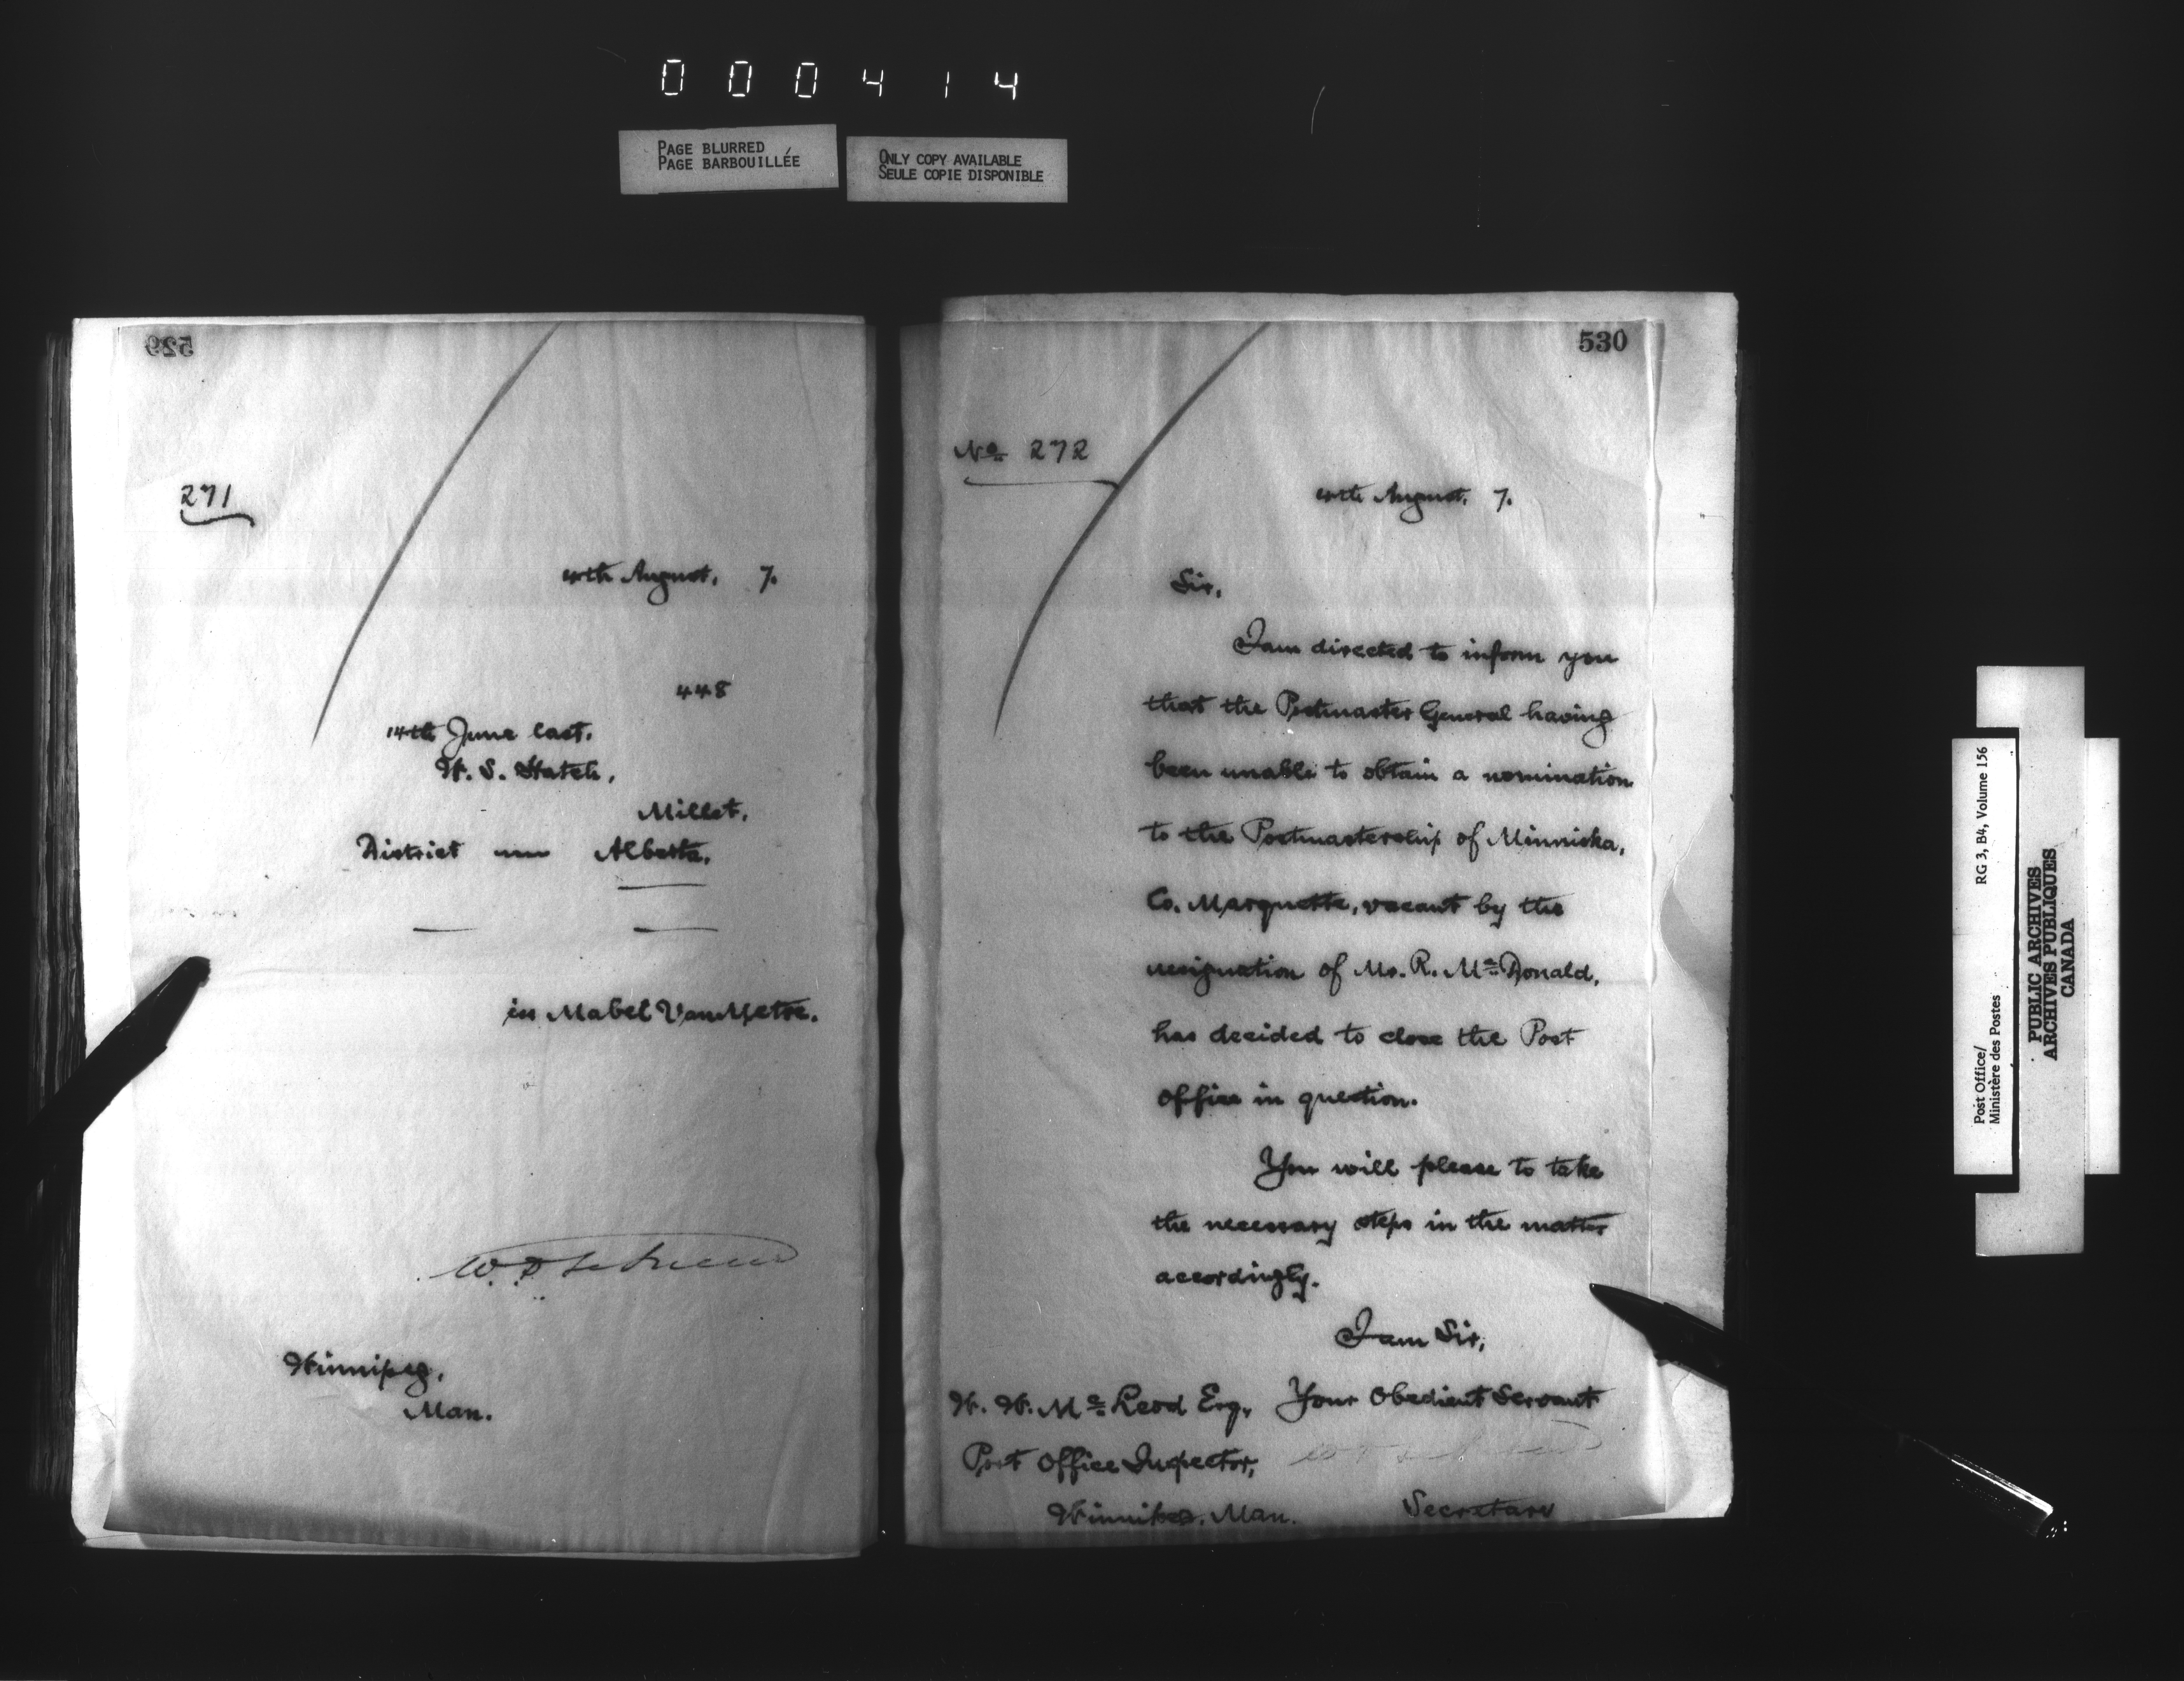 000414
PAGE BLURRED
PAGE BARBOUILLÉE
ONLY COPY AVAILABLE
SEULE COPIE DISPONIBLE
529
271
August, 7.
448
14th June last.
W. S. Hatch,
Millet,
District Alberta.
in Mabel VanMetre.
Winnipeg,
Man.
530
No 272
August, 7.
Sir,
I am directed to inform you
that the Postmaster General having
been unable to obtain a nomination
to the Postmastership of Minniska,
Co. Marquette, vacant by the
resignation of Mr. R. McDonald,
has decided to close the Post
Office in question.
You will please to take
the necessary steps in the matter
accordingly.
I am Sir,
Your Obedient Servant
W. W. McLeod Esq,
Post Office Inspector,
Winnipeg, Man.
Secretary
Post Office/
Ministère des Postes
RG 3, B4, Volume 156
PUBLIC ARCHIVES
ARCHIVES PUBLIQUES
CANADA